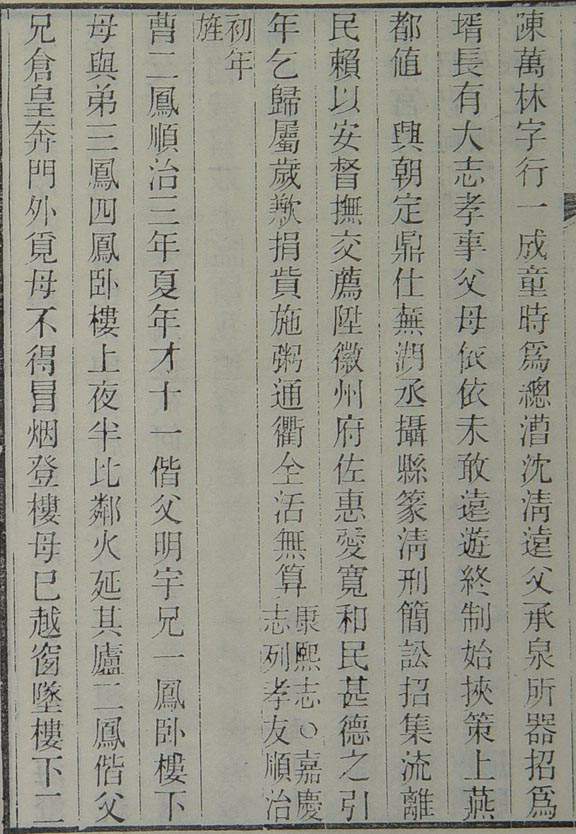 陳萬林字行一成童時爲總漕沈淸遠父承泉所器招爲
壻長有大志孝事父母依依未敢遠遊終制始挾策上燕
都値 興朝定鼎仕蕪湖丞攝縣篆淸刑簡訟招集流離
民賴以安督撫交薦陞徽州府佐惠愛寬和民甚德之引
年乞歸屬歲歉捐貲施粥通衢全活無算
康熙志○嘉慶
志列孝友順治
初年
旌
曹二鳳順治三年夏年才十一偕父明宇兄一鳳卧樓下
母與弟三鳳四鳳卧樓上夜半比鄰火延其廬二鳳偕父
兄倉皇奔門外覓母不得冒烟登樓母已越窗墜樓下二